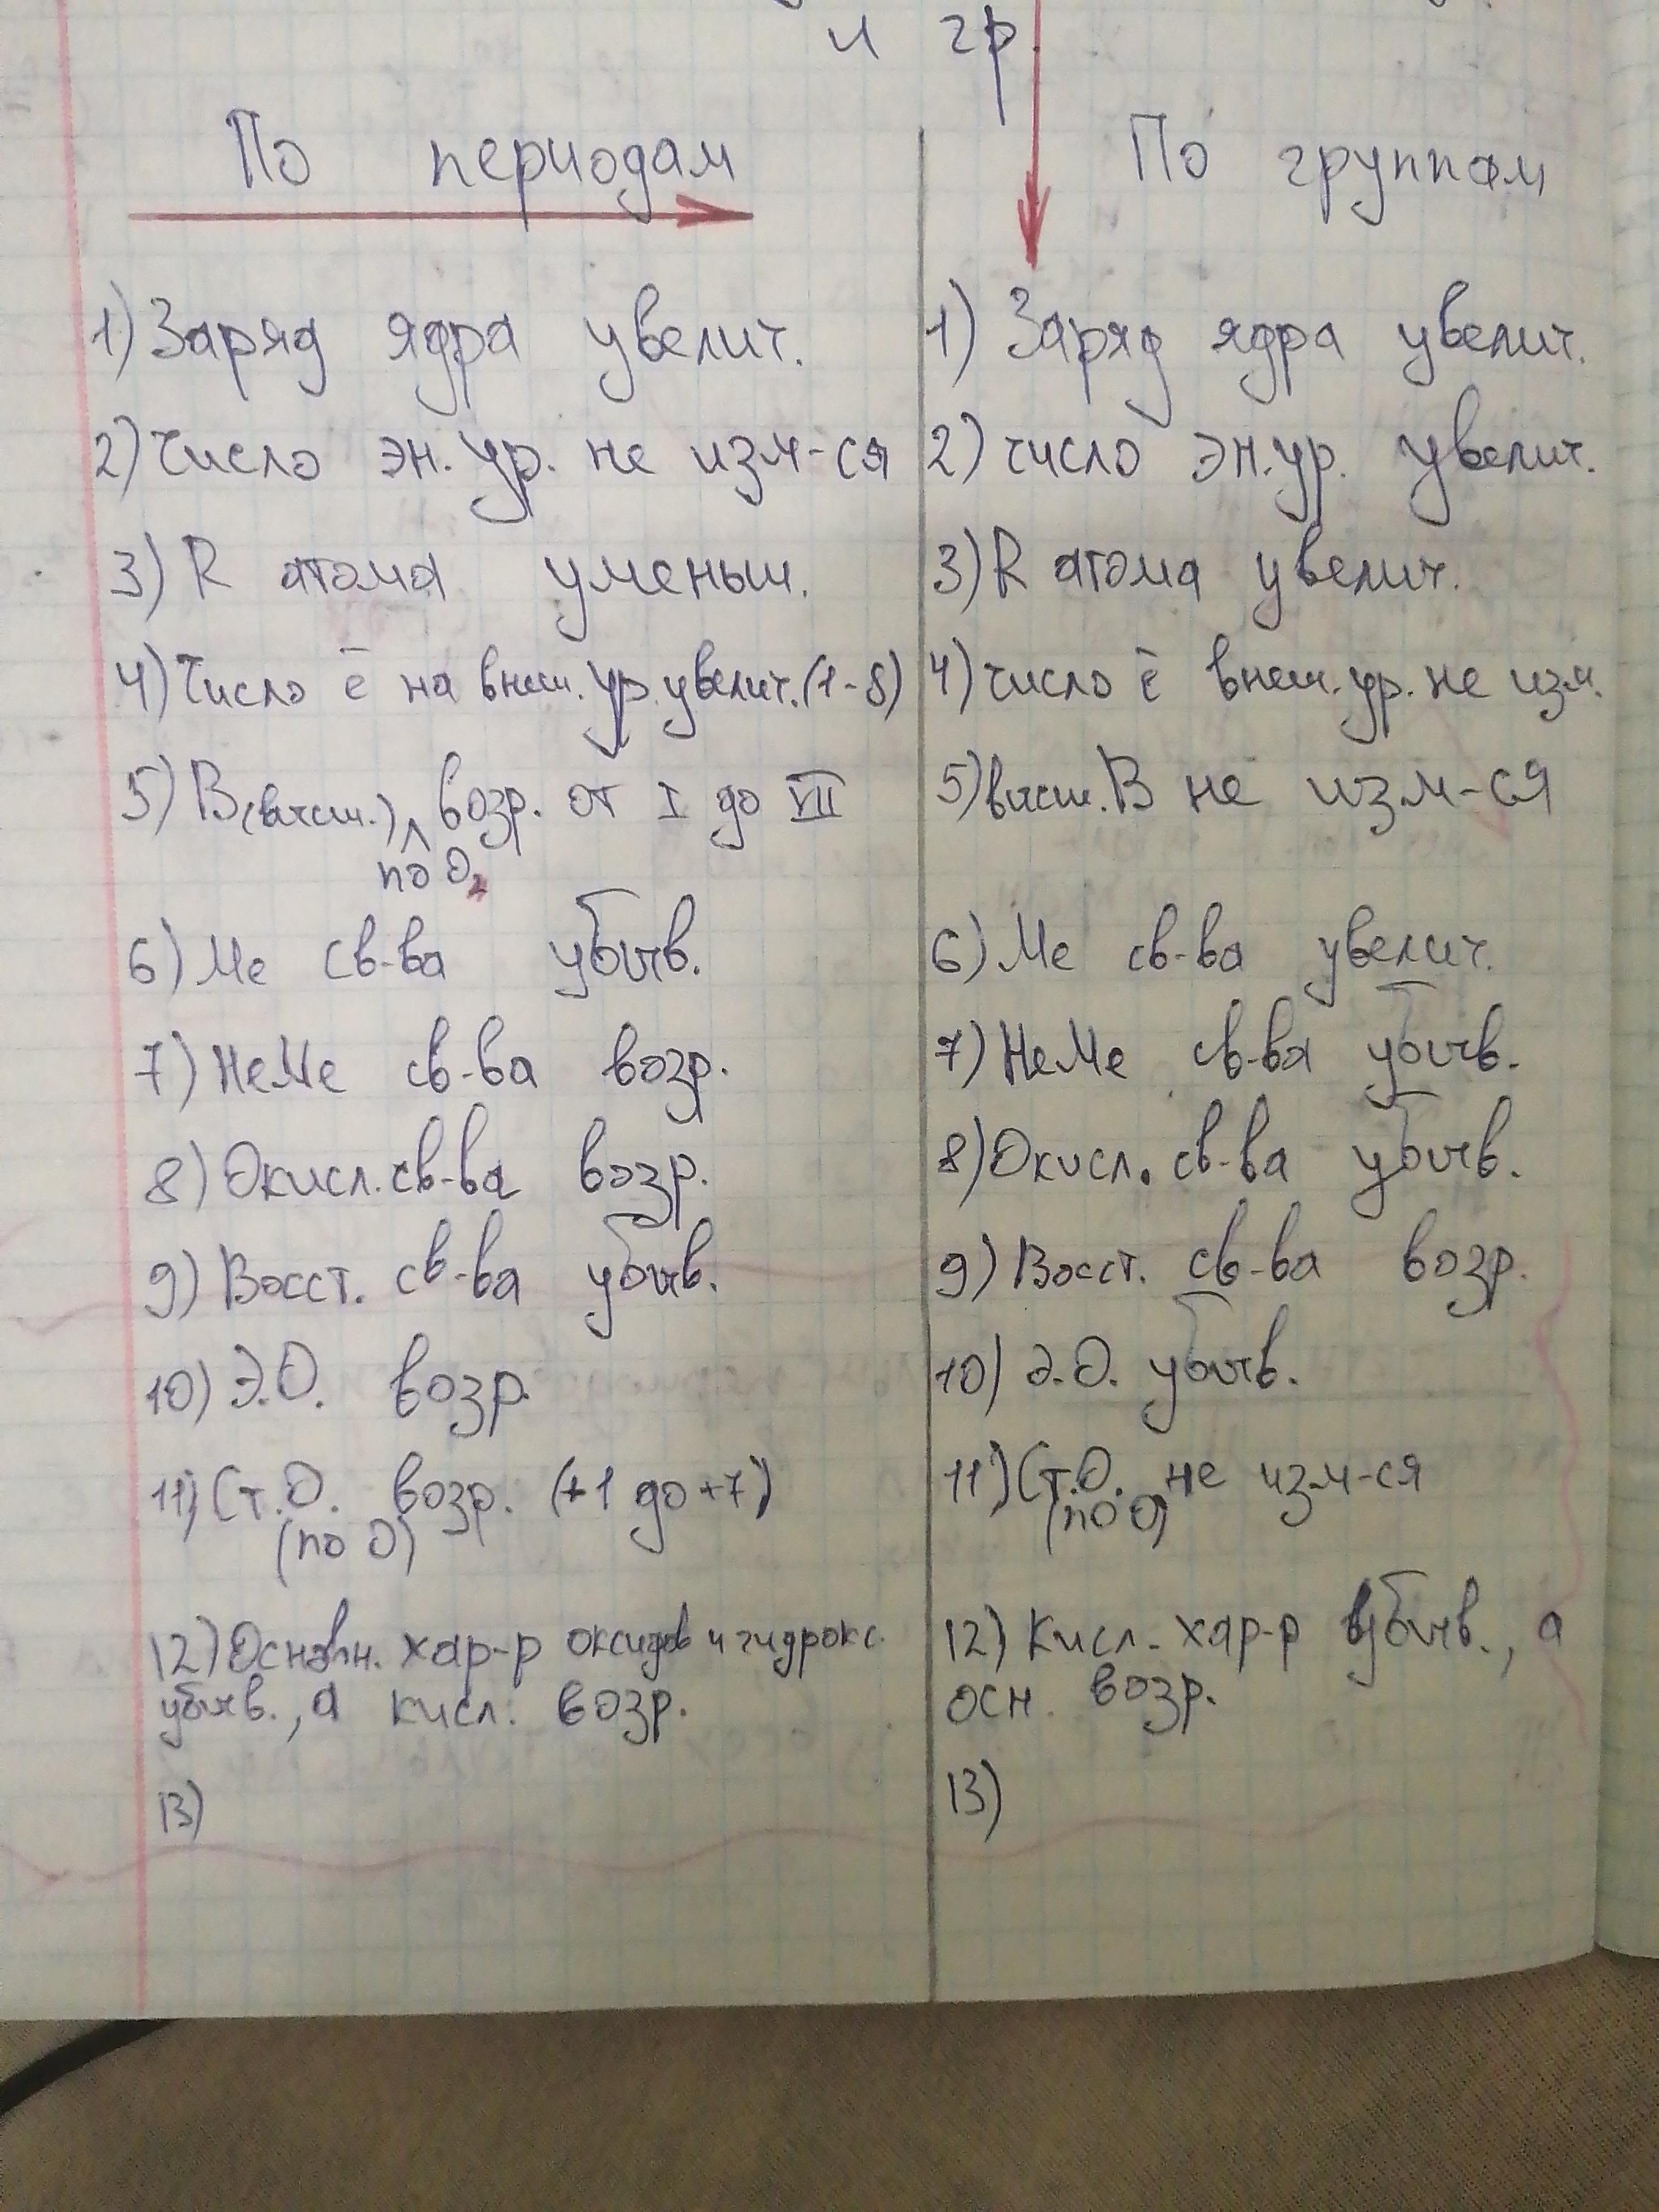 и гр.
По периодам
1) Заряд ядра увелич.
2) Число эн. ур. не изм-ся
3) R атома уменьш.
4) Число ē на внеш. ур. увелич. (1-8)
5) В(высш.) возр. от I до VII
по O₂
6) Ме св-ва убыв.
7) НеМе св-ва возр.
8) Окисл. св-ва возр.
9) Восст. св-ва убыв.
10) Э.О. возр.
11) Ст.О. возр. (+1 до +7)
(по О)
12) Основн. хар-р оксидов и гидрокс.
убыв., а кисл. возр.
13)
По группам
1) Заряд ядра увелич.
2) число эн. ур. увелич.
3) R атома увелич.
4) число ē внеш. ур. не изм.
5) высш. В не изм-ся
6) Ме св-ва увелич.
7) НеМе св-ва убыв.
8) Окисл. св-ва убыв.
9) Восст. св-ва возр.
10) Э.О. убыв.
11) Ст.О. не изм-ся
(по О)
12) Кисл. хар-р убыв., а
осн. возр.
13)